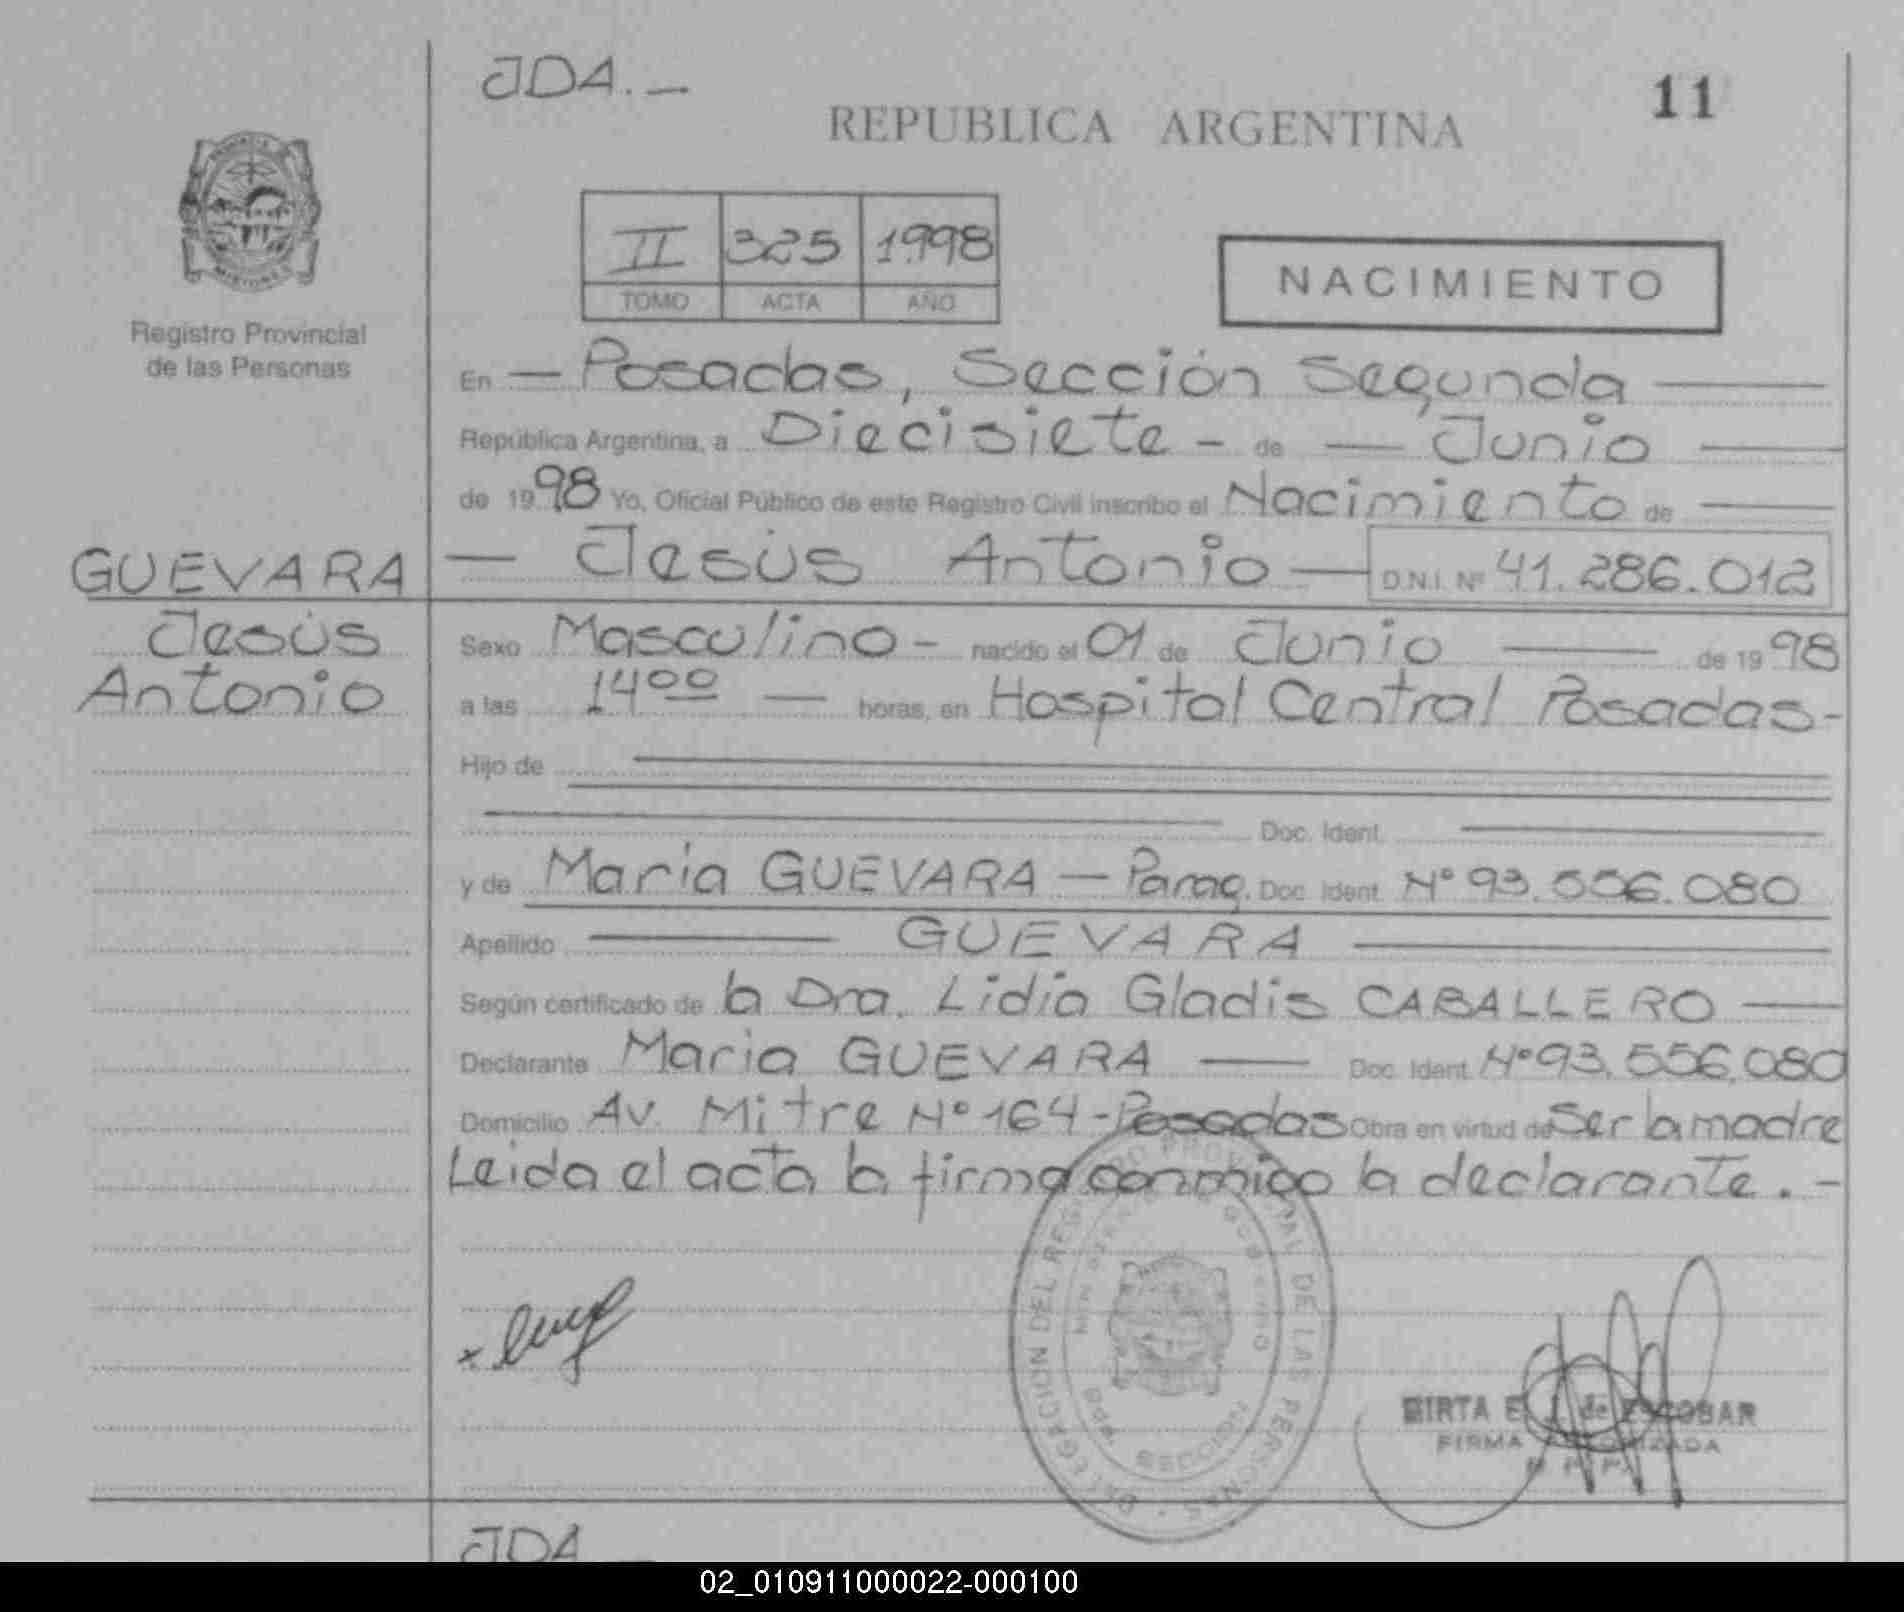 JDA. —
11
REPUBLICA ARGENTINA
II 325 1998
TOMO ACTA AÑO
NACIMIENTO
Registro Provincial
de las Personas
En — Posadas, Sección Segunda —
República Argentina, a Diecisiete - de — Junio —
de 1998 Yo, Oficial Público de este Registro Civil inscribo el Nacimiento de —
GUEVARA — Jesús Antonio — D.N.I. Nº 41.286.012
Jesús
Antonio
Sexo Masculino - nacido el 01 de Junio — de 1998
a las 14⁰⁰ — horas, en Hospital Central Posadas-
Hijo de
Doc. Ident.
y de Maria GUEVARA — Parag. Doc. Ident. Nº 93.556.080
Apellido — GUEVARA —
Según certificado de la Dra. Lidia Gladis CABALLERO —
Declarante Maria GUEVARA — Doc. Ident. Nº 93.556.080
Domicilio Av. Mitre Nº 164 - Posadas Obra en virtud de Ser la madre
Leida el acta la firma conmigo la declarante. -
DELEGACION DEL REGISTRO PROVINCIAL DE LAS PERSONAS
SECCION
MIRTA E. J. de ESCOBAR
FIRMA AUTORIZADA
JDA —
02_010911000022-000100